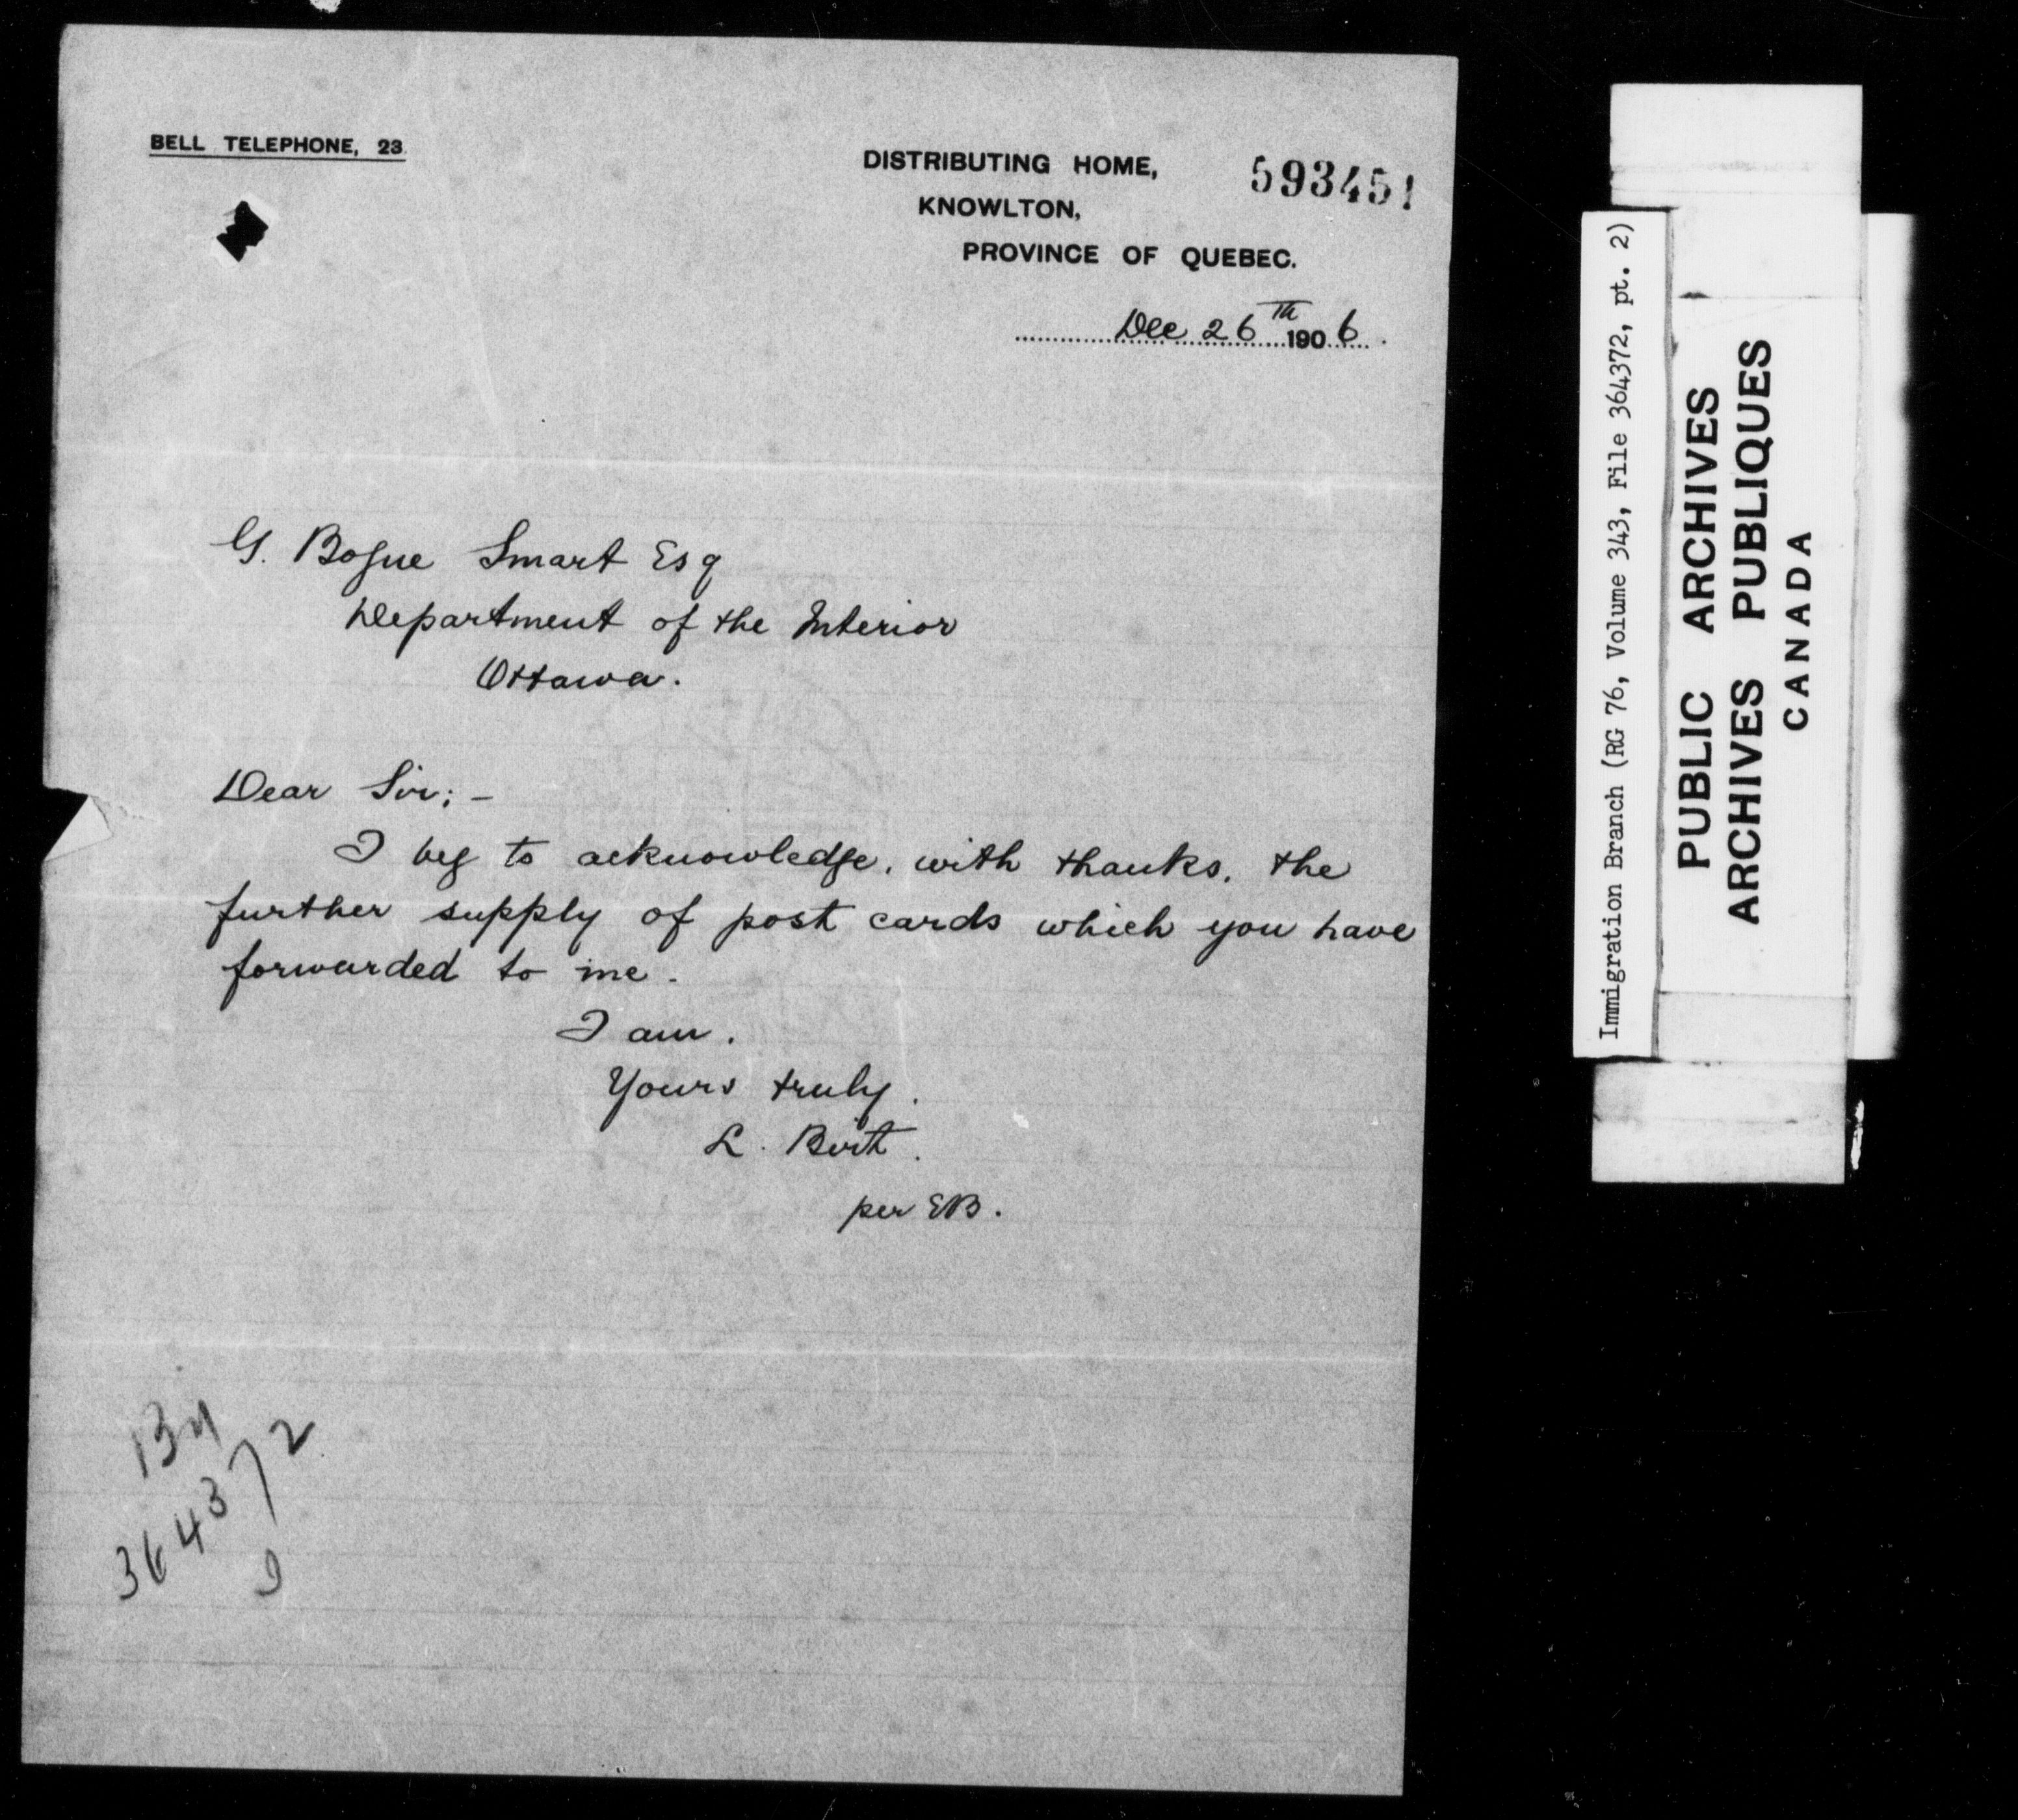 BELL TELEPHONE, 23
DISTRIBUTING HOME,
593451
KNOWLTON,
PROVINCE OF QUEBEC.
Dec 26th 1906.
G. Bogue Smart Esq
Department of the Interior
Ottawa.
Dear Sir; -
I beg to acknowledge, with thanks, the
further supply of post cards which you have
forwarded to me.
I am.
Yours truly.
L. Birt.
per EB.
364372
Immigration Branch (RG 76, Volume 343, File 364372, pt. 2)
PUBLIC ARCHIVES
ARCHIVES PUBLIQUES
CANADA